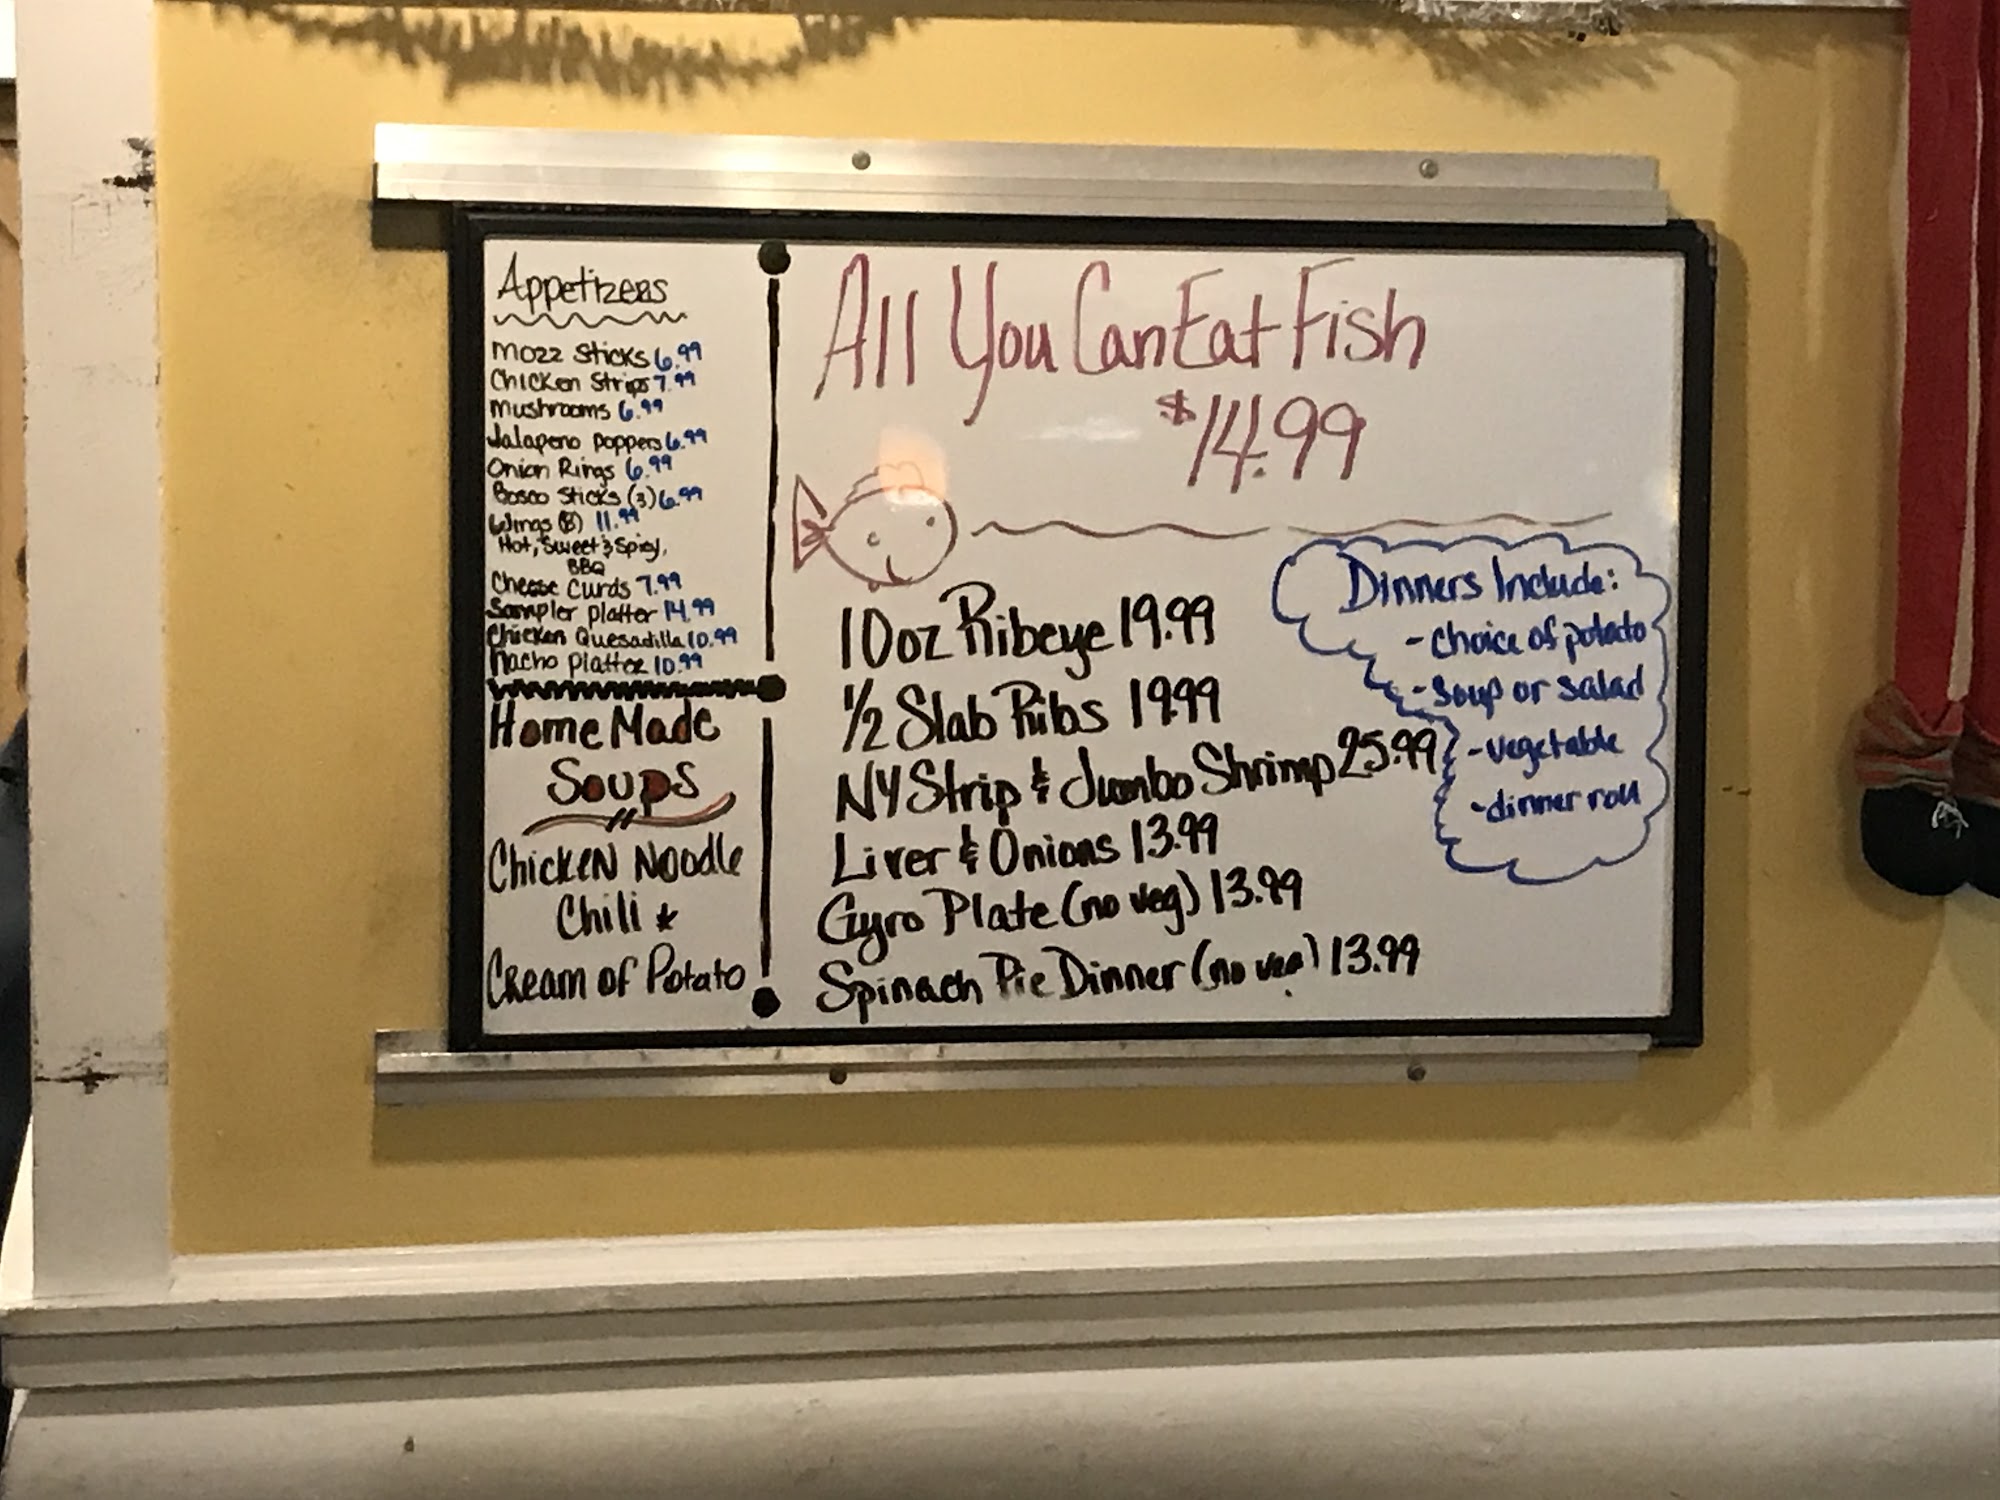 Appetizers
Mozz Sticks 6.99
Chicken Strips 7.99
Mushrooms 6.99
Jalapeno Poppers 6.99
Onion Rings 6.99
Bosco Sticks (3) 6.99
Wings (8) 11.99
Hot, Sweet & Spicy,
BBQ
Cheese Curds 7.99
Sampler Platter 14.99
Chicken Quesadilla 10.99
Nacho Platter 10.99
Home Made
Soups
Chicken Noodle
Chili *
Cream of Potato
All You Can Eat Fish
$14.99
10oz Ribeye 19.99
1/2 Slab Ribs 19.99
NY Strip & Jumbo Shrimp 25.99
Liver & Onions 13.99
Gyro Plate (no veg) 13.99
Spinach Pie Dinner (no veg) 13.99
Dinners Include:
- choice of potato
- soup or salad
- vegetable
- dinner roll